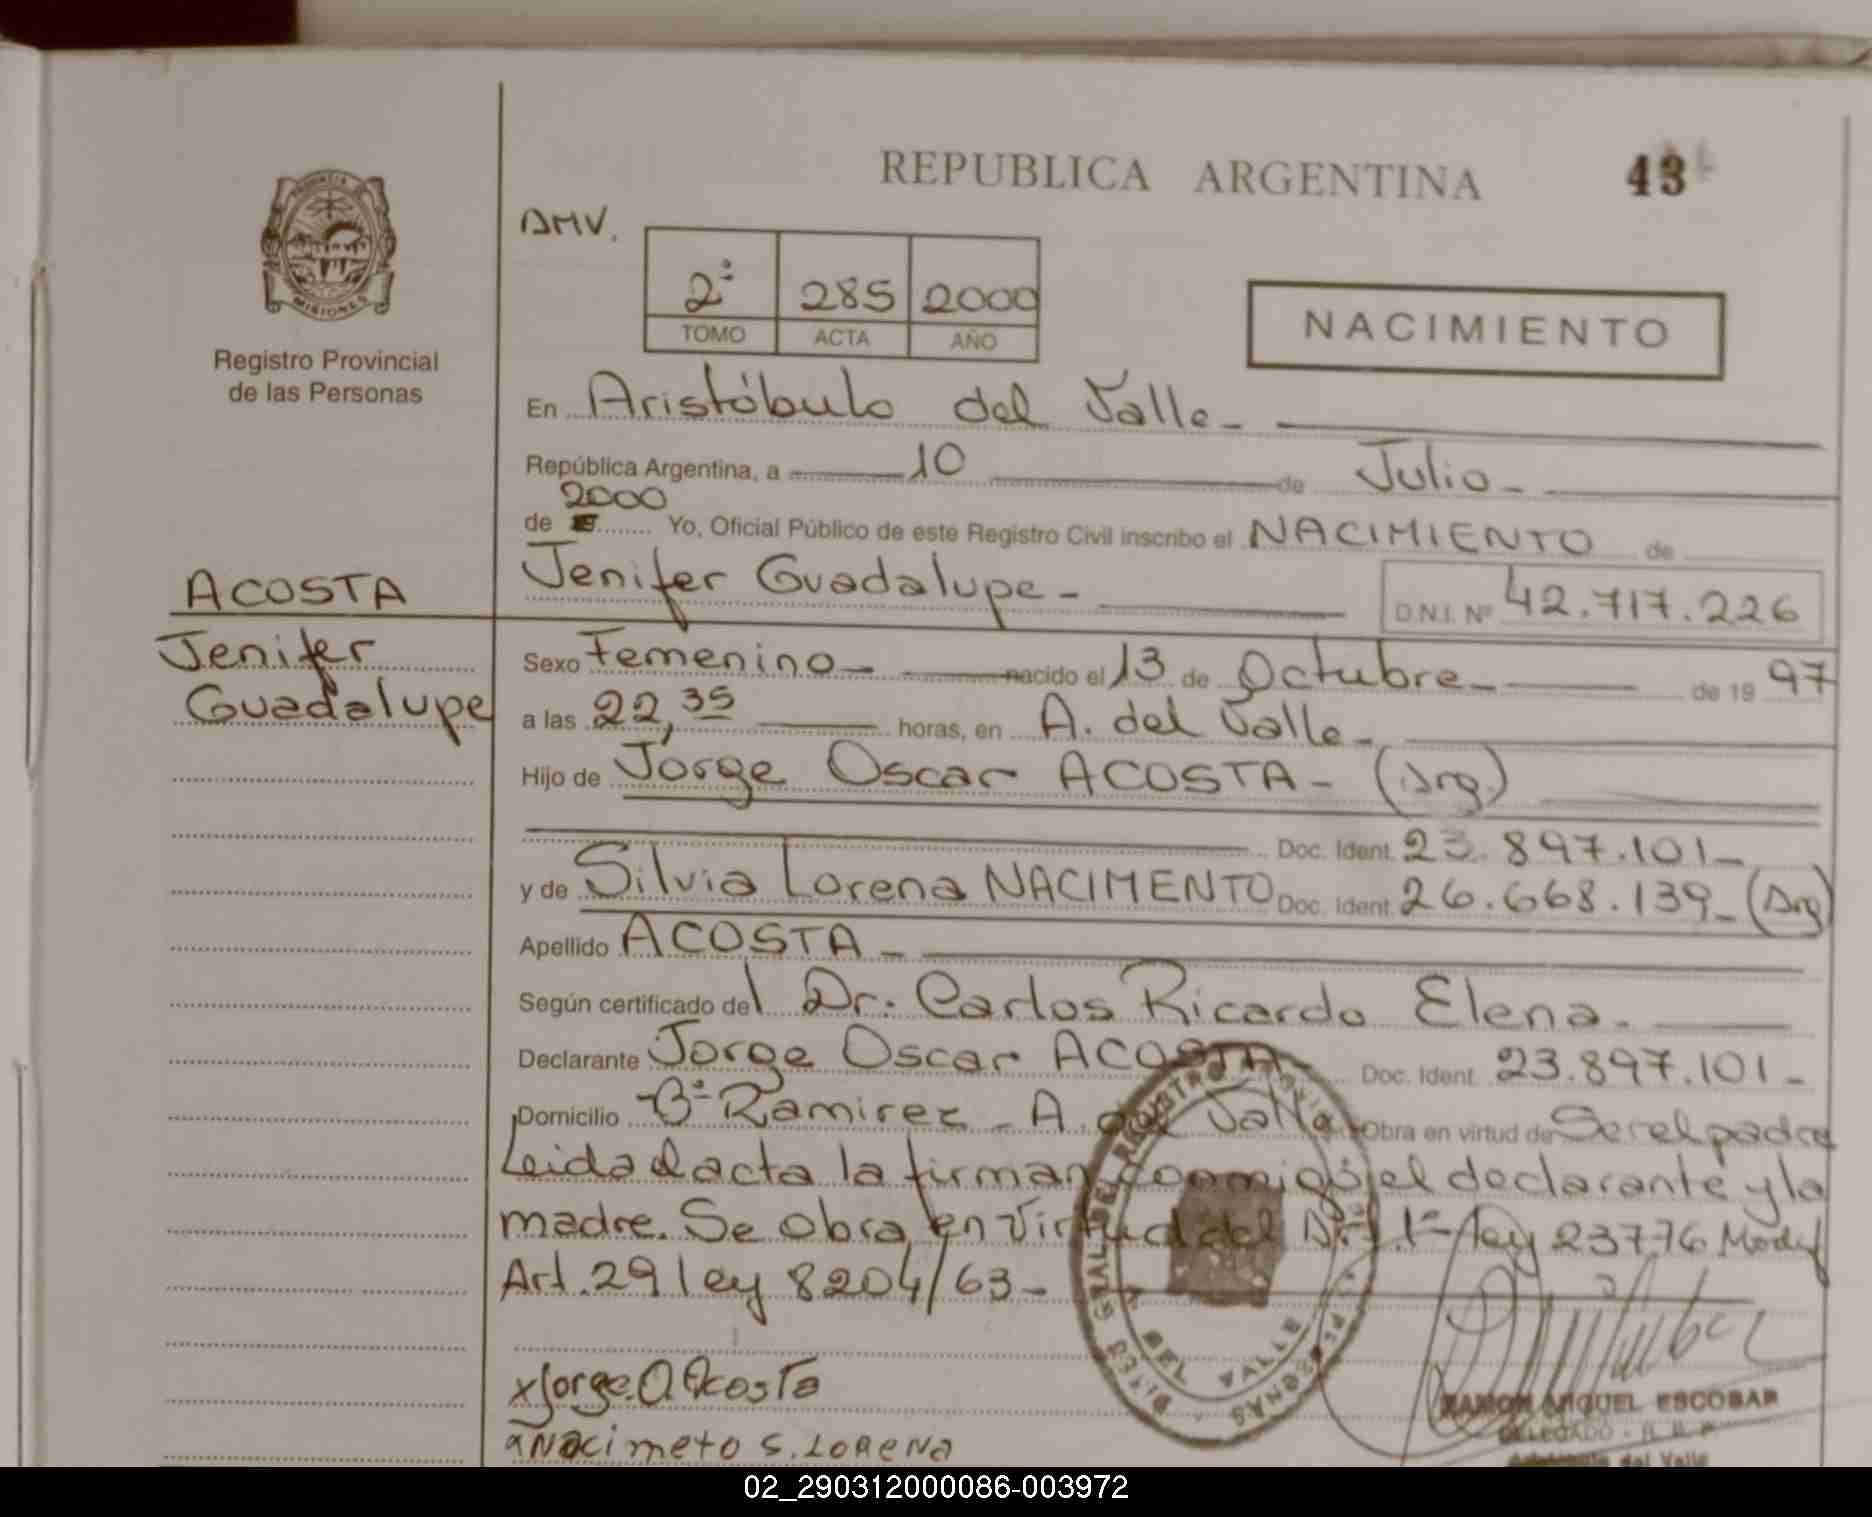 REPUBLICA ARGENTINA
43
PROVINCIA DE
MISIONES
Registro Provincial
de las Personas
DMV.
2º 285 2000
TOMO ACTA AÑO
NACIMIENTO
En Aristóbulo del Valle -
República Argentina, a 10 de Julio -
2000
de 19 Yo, Oficial Público de este Registro Civil inscribo el NACIMIENTO de
ACOSTA
Jenifer Guadalupe - D.N.I. Nº 42.717.226
Jenifer
Guadalupe
Sexo Femenino - nacido el 13 de Octubre - de 19 97
a las 22,35 horas, en A. del Valle -
Hijo de Jorge Oscar ACOSTA - (Arg.)
Doc. Ident. 23.897.101 -
y de Silvia Lorena NACIMENTO Doc. Ident. 26.668.139 - (Arg)
Apellido ACOSTA -
Según certificado del Dr. Carlos Ricardo Elena -
Declarante Jorge Oscar ACOSTA - Doc. Ident. 23.897.101 -
Domicilio Bº Ramirez - A. del Valle - Obra en virtud de Ser el padre
Leida el acta la firman conmigo el declarante y la
madre. Se obra en virtud del Art. 1º ley 23776 Modif
Art. 29 ley 8204/63 -
x Jorge. O. Acosta
x Nacimeto S. LORENA
DEL VALLE
RAMON MIGUEL ESCOBAR
DELEGADO - R. P. P.
Aristóbulo del Valle
02_290312000086-003972